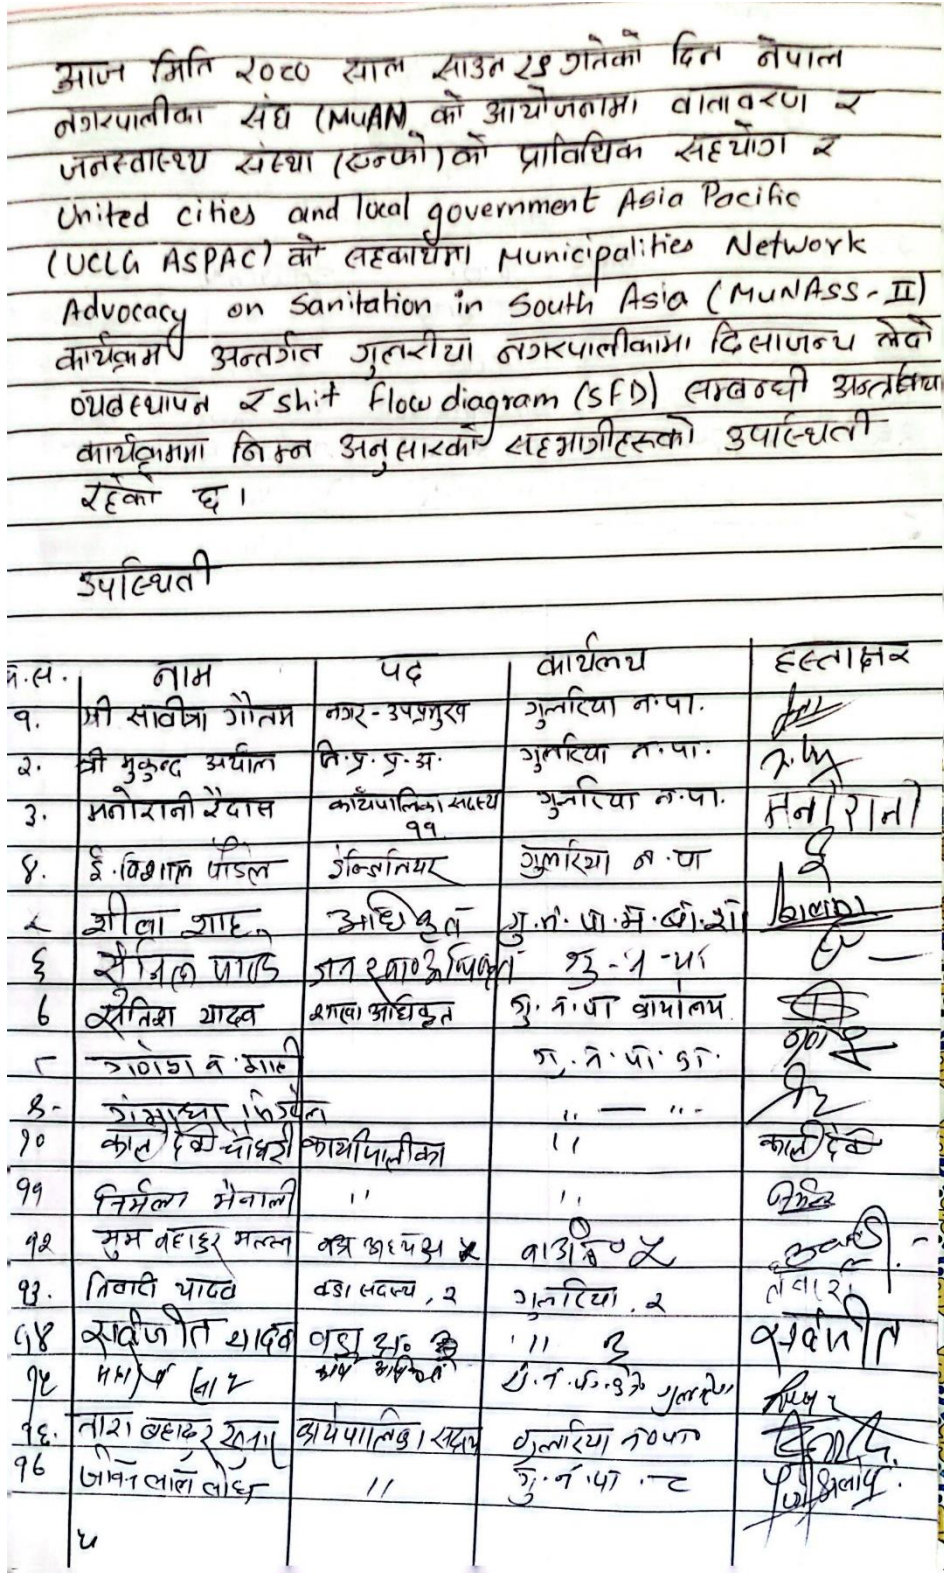 आज मिति २०८० साल साउन २९ गतेको दिन नेपाल
नगरपालीका संघ (MuAN) को आयोजनामा वातावरण र
जनस्वास्थ्य संस्था (एन्फो) को प्राविधिक सहयोग र
United cities and local government Asia Pacific
(UCLG ASPAC) को सहकार्यमा Municipalities Network
Advocacy on Sanitation in South Asia (MuNASS-II)
कार्यक्रम अन्तर्गत गुलरीया नगरपालीकामा दिसाजन्य लेदो
व्यवस्थापन र shit flow diagram (SFD) सम्बन्धी अन्तरक्रिया
कार्यक्रममा निम्न अनुसारको सहभागीहरूको उपस्थिती
रहेको छ ।
उपस्थिती
क्र.स. नाम पद कार्यलय हस्ताक्षर
१. श्री सावीत्रा गौतम नगर-उपप्रमुख गुलरिया न.पा.
२. श्री मुकुन्द अर्याल नि.प्र.प्र.अ. गुलरिया न.पा.
३. मनोरानी रैदास कार्यपालिका सदस्य ११ गुलरिया न.पा. मनोरानी
४. ई. विशाल पौडेल इन्जिनियर गुलरिया न.पा
५ शीला शाह अधिकृत गु.न.पा.
६ पाण्डे गु-न-पा
७ यादव शाखा अधिकृत गु.न.पा कार्यालय
८ गु.न.पा.का.
९- ,, — ,,-
१० काली देवी चौधरी कार्यापालीका ,, काली देवी
११ निर्मला मैनाली ,, ,,
१२ बहादुर मल्ल वडा अध्यक्ष ५ ५
१३. तिवारी यादव वडा सदस्य, २ गुलरिया, २
१४ सर्वजीत यादव वडा अ० ३ ,, ३ सर्वजीत
१५
१६. तारा बहादुर कार्यपालिका सदस्य गुलरिया न०पा०
१७ लाल लोध ,, गु.न.पा.-८